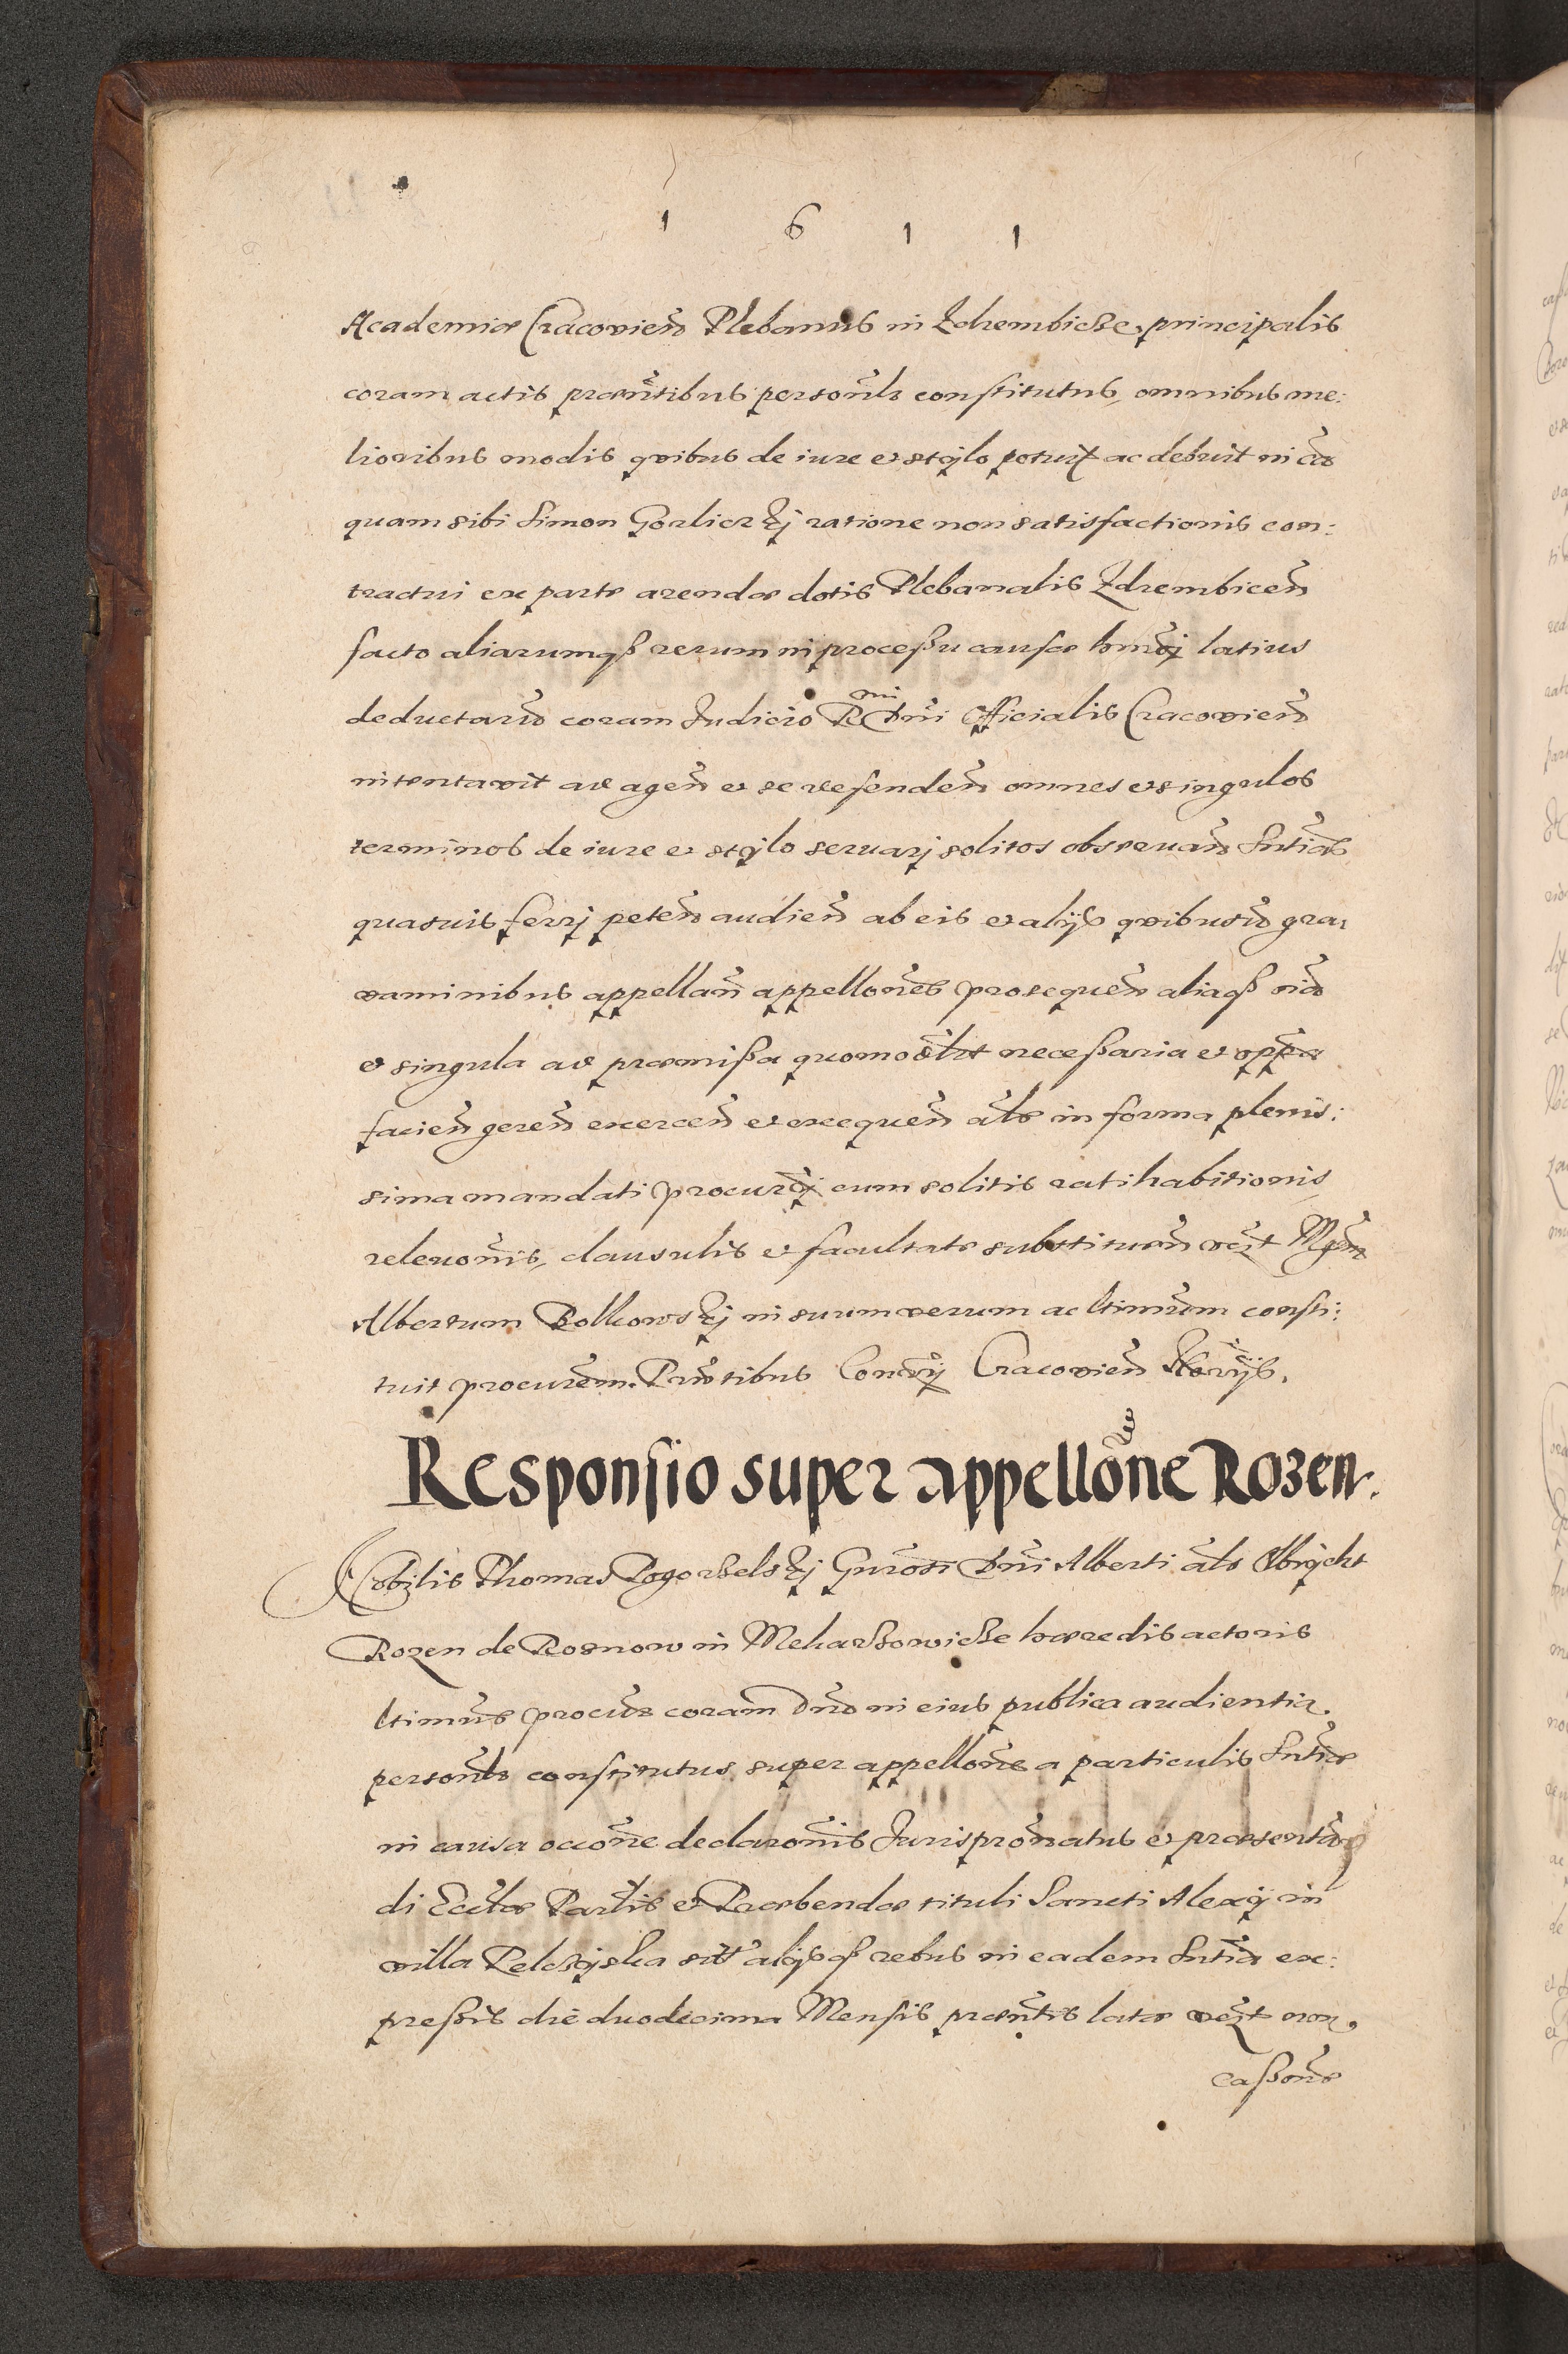 1 6 1 1
Academiæ Cracovien̄ Plebanus in Zdrembicze, principalis
coram actis præn̄tibus person̄lr constitutus, omnibus me:
lioribus modis quibus de iure et stylo potuit ac debuit in cā
quam sibi Simon Gorliczkj ratione non satisfactionis con:
tractui ex parte arendæ dotis Plebanalis Zdrembicen̄
facto aliarumqß rerum in proceßu causæ hm̄oj latius
deductarū coram Judicio R mi Dn̄i Officialis Cracovien̄
intentavit ad agen̄ et se defenden̄ omnes et singulos
terminos de iure et stylo servarj solitos observan̄ Sn̄tias
quasuis ferrj peten̄ audien̄ ab eis et alijs quibusuis gra,
vaminibus appellan̄ appellon̄es prosequen̄ aliaqß oīa
et singula ad præmißa quomodolt neceßaria et oppor
facien̄ geren̄ exercen̄ et exequen̄ al̄s in forma plenis:
sima mandati procur̄oj cum solitis ratihabitionis,
relevon̄is, clausulis et facultate substituen̄ Mgr̄m
Albertum Rolkowskj in suum verum ac ltimūm consti:
tuit procur̄em. Pn̄tibus Consrij Cracovien̄ Notrijs.
Responsio super appellōne Rozen.
Nobilis Thomas Pogorzelskj Gn̄rosi Dn̄i Alberti al̄s Olbrycht
Rozen de Roznow in Mcharzowicze hæredis actoris
ltimūs procur̄ coram Dn̄o in eius publica audientia.
person̄lr constitutus super appellon̄e a particulis Sn̄tiæ
in causa occōne declaron̄is Jurispron̄atus et præsentan̄
di Eccl̄æ Par̄lis et Præbendæ tituli Sancti Alexij in
villa Pelczyska alijsqß rebus in eadem Sn̄tia ex:
preßis die duodecima Mensis præn̄tis latæ non,
caßon̄e